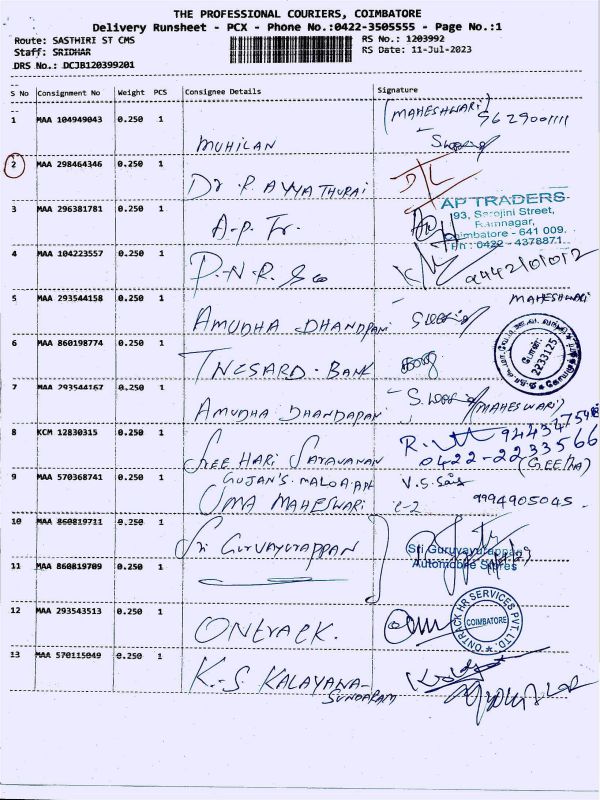 THE PROFESSIONAL COURIERS, COIMBATORE
Delivery Runsheet - PCX - Phone No.:0422-3505555 - Page No.:1
Route: SASTHIRI ST CMS
RS No.: 1203992
Staff: SRIDHAR
RS Date: 11-Jul-2023
DRS No.: DCJB120399201
S No Consignment No Weight PCS Consignee Details Signature
1 MAA 104949043 0.250 1 MUHILAN (MAHESHWARI) 9629001111
2 MAA 298464346 0.250 1 Dr P. AYYATHURAI D/L
3 MAA 296381781 0.250 1 A.P. Tr.
AP TRADERS
93, Sarojini Street,
Ramnagar,
Coimbatore - 641 009.
Ph : 0422 - 4378871
4 MAA 104223557 0.250 1 P.N.R. & Co
5 MAA 293544158 0.250 1 AMUDHA DHANDPANI MAHESHWARI
6 MAA 860198774 0.250 1 BANK
2233125
7 MAA 293544167 0.250 1 AMUDHA DHANDAPANI (MAHESWARI)
8 KCM 12830315 0.250 1 SREE HARI SARAVANAN
0422-2233566
9 MAA 570368741 0.250 1 UMA MAHESWARI 9994905045
10 MAA 860819711 0.250 1 Sri GURUVAYURAPPAN
Sri Guruvayurappan
Automobile Stores
11 MAA 860819709 0.250 1
12 MAA 293543513 0.250 1 ONTRACK.
ONTRACK HR SERVICES PVT. LTD.
COIMBATORE
13 MAA 570115049 0.250 1 K.S. KALAYANA-
SUNDARAM